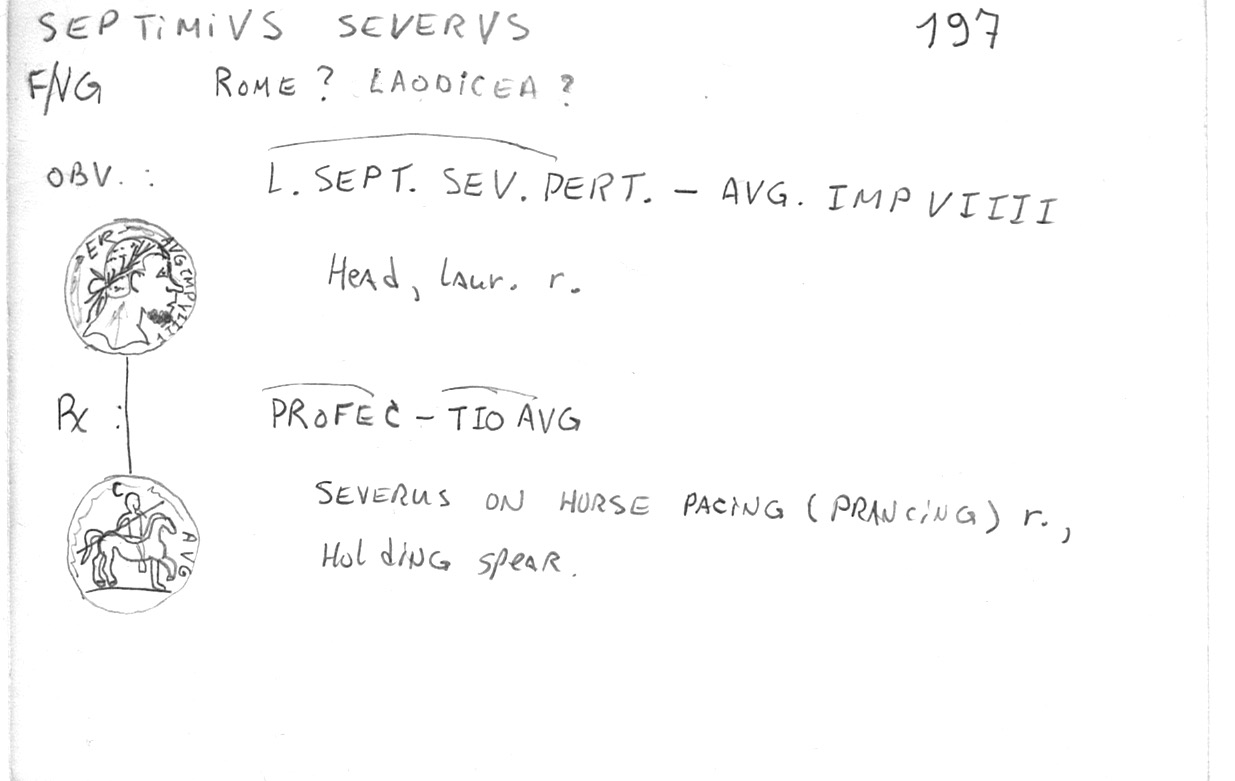 SEPTiMiVS SEVERVS 197
F/VG ROME ? LAODiCEA ?
OBV. : L. SEPT. SEV. PERT. – AVG. IMP VIIII
ER – AVG IMP VIIII
Head, laur. r.
Rx : PROFEC – TIO AVG
C AVG
SEVERUS ON HORSE PACiNG (PRANCiNG) r.,
HoldiNG speaR.